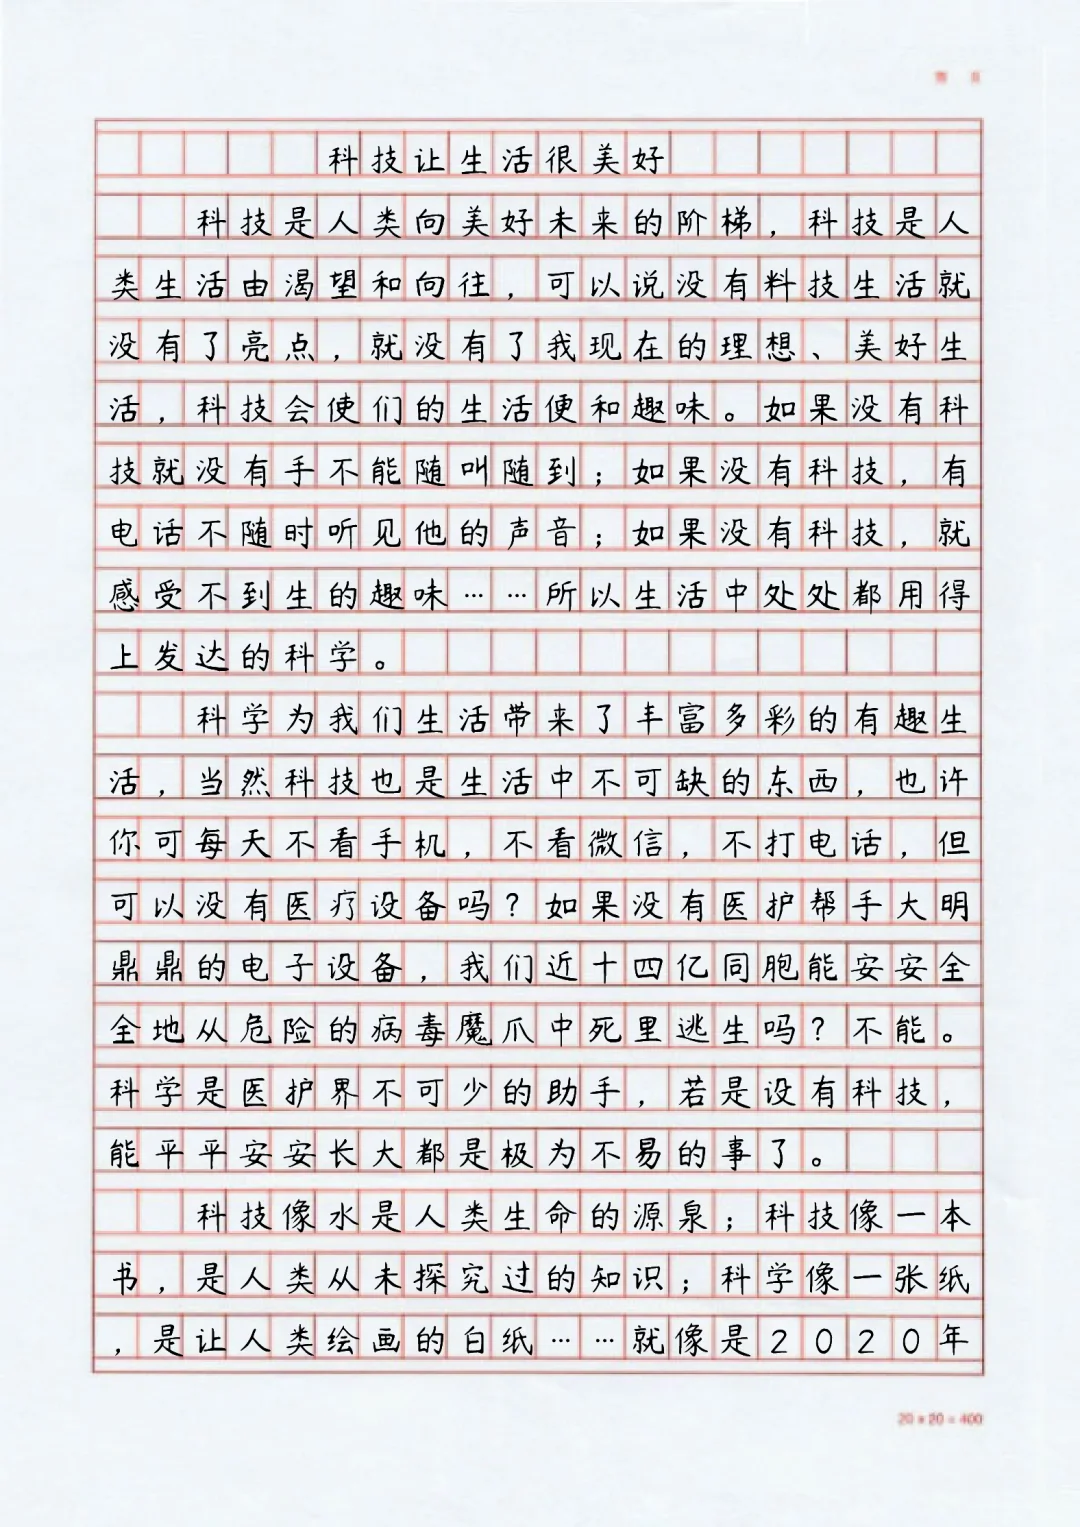 科技让生活很美好
科技是人类向美好未来的阶梯，科技是人
类生活由渴望和向往，可以说没有料技生活就
没有了亮点，就没有了我现在的理想、美好生
活，科技会使们的生活便和趣味。如果没有科
技就没有手不能随叫随到；如果没有科技，有
电话不随时听见他的声音；如果没有科技，就
感受不到生的趣味……所以生活中处处都用得
上发达的科学。
科学为我们生活带来了丰富多彩的有趣生
活，当然科技也是生活中不可缺的东西，也许
你可每天不看手机，不看微信，不打电话，但
可以没有医疗设备吗？如果没有医护帮手大明
鼎鼎的电子设备，我们近十四亿同胞能安安全
全地从危险的病毒魔爪中死里逃生吗？不能。
科学是医护界不可少的助手，若是设有科技，
能平平安安长大都是极为不易的事了。
科技像水是人类生命的源泉；科技像一本
书，是人类从未探究过的知识；科学像一张纸
，是让人类绘画的白纸……就像是2020年
20×20=400